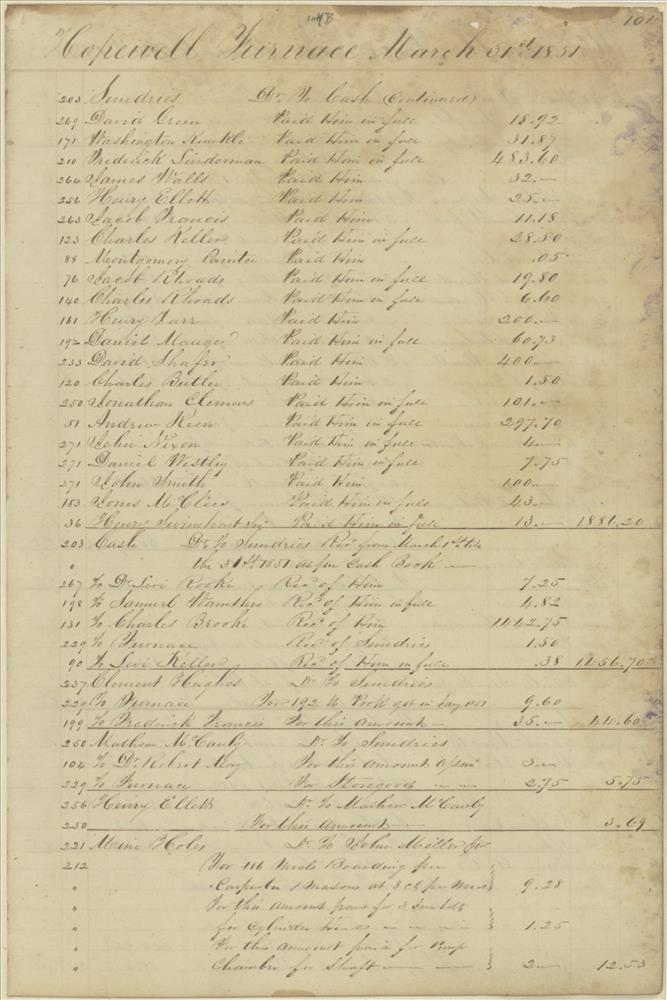 104B
101
Hopewell Furnace March 31st 1851
203 Sundries Dr. To Cash (Continued)
269 David Green Paid Him in full 18.92
171 Washington Kunkle Paid Him in full 31.87
210 Frederick Linderman Paid Him in full 483.60
264 James Walls Paid Him 32.—
256 Henry Ellett Paid Him 25.—
263 Jacob Francis Paid Him 11.18
123 Charles Keller Paid Him in full 28.50
88 Montgomery Painter Paid Him .05
76 Jacob Rhoads Paid Him in full 19.80
140 Charles Rhoads Paid Him in full 6.60
161 Henry Care Paid Him 200.—
192 Daniel Mauger Paid Him in full 60.73
233 David Shafer Paid Him 400.—
120 Charles Butler Paid Him 1.50
250 Jonathan Clemens Paid Him in full 101.—
51 Andrew Keen Paid Him in full 297.70
271 John Nixon Paid Him in full — 4.—
271 Daniel Westley Paid Him in full 7.75
271 John Smith Paid Him 100.—
183 Jones McClees Paid Him in full 43.—
36 Henry Swinehart Paid Him in full 13.— 1886.20
203 Cash Dr. To Sundries Recd from March 1st till
" the 31st 1851 as per Cash Book —
267 To Dr. Levi Rooke Recd of Him 7.25
198 To Samuel Recd of Him in full 4.82
131 To Charles Brooke Recd of Him 1442.75
229 To Furnace Recd of Sundries 1.50
90 To Levi Keller Recd of Him in full .38 1456.70
237 Clement Hughes Dr. To Sundries
229 To Furnace For 192 lb Pork got in 9.60
199 To Frederick Francis For this amount — 35.— 44.60
250 Mathew McCauly Dr. To Sundries
104 To Dr. Robert May For this amount 3.—
229 To Furnace For Storegoods — — 2.75 5.75
256 Henry Ellett Dr. To Mathew McCauly
250 For this amount — 3.69
221 Mine Holes Dr. To John Miller
212 For 116 Meals Boarding for
" Carpenter & Masons at 8 cts per Meal 9.28
" For this amount paid for 3
" for Cylinder Heads — — — 1.25
" For this amount paid for Pump
" Chamber for Shaft — — — 2.— 12.53